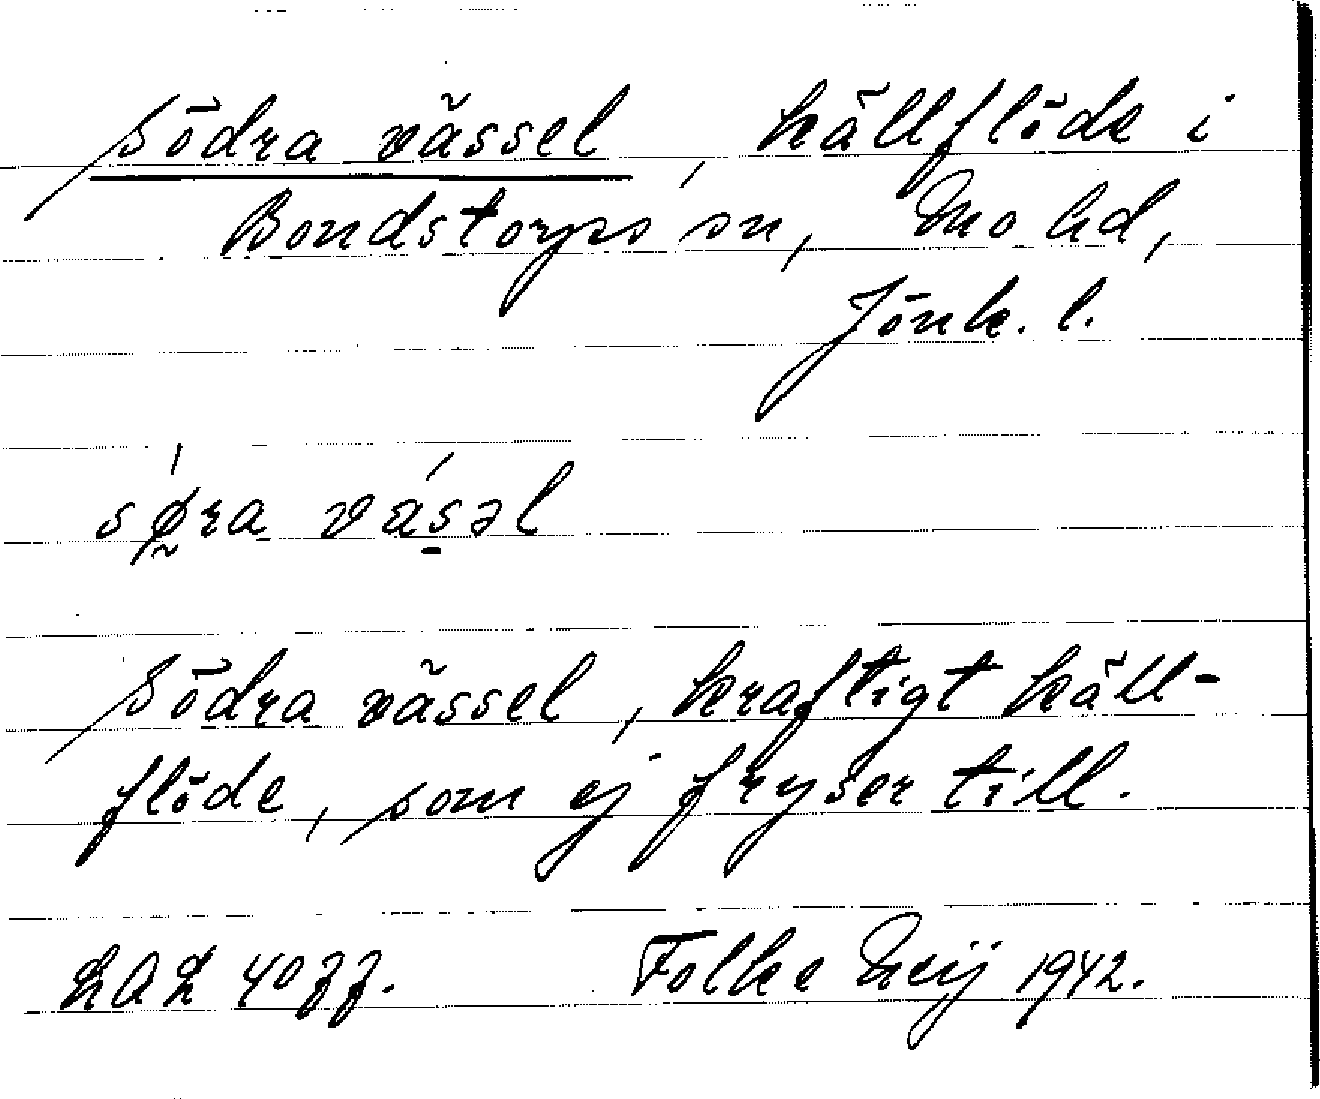 Södra vässel, källflöde i
Bondstorps sn, Mo hd,
Jönk. l.
søra vásəl
Södra vässel, kraftigt käll-
flöde, som ej fryser till.
LAL 4077. Folke Meij 1942.